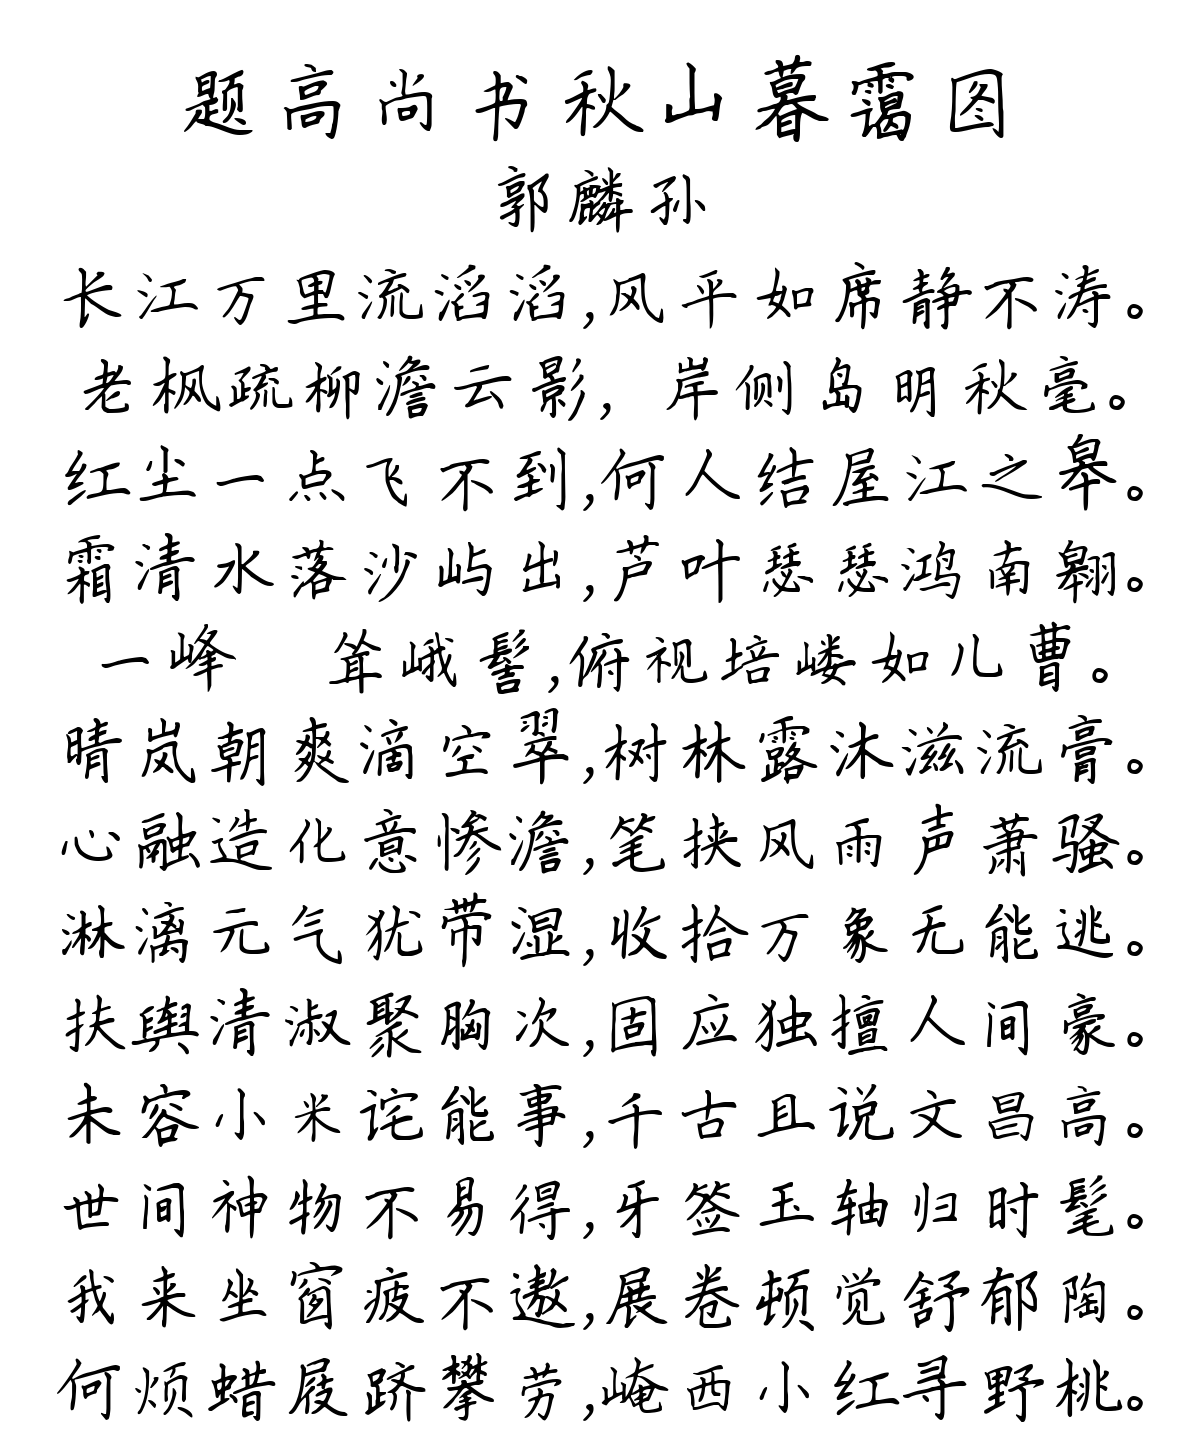 题高尚书秋山暮霭图
郭麟孙
长江万里流滔滔,风平如席静不涛。
老枫疏柳澹云影,岸侧岛明秋毫。
红尘一点飞不到,何人结屋江之皋。
霜清水落沙屿出,芦叶瑟瑟鸿南翱。
一峰 耸峨髻,俯视培嵝如儿曹。
晴岚朝爽滴空翠,树林露沐滋流膏。
心融造化意惨澹,笔挟风雨声萧骚。
淋漓元气犹带湿,收拾万象无能逃。
扶舆清淑聚胸次,固应独擅人间豪。
未容小米诧能事,千古且说文昌高。
世间神物不易得,牙签玉轴归时髦。
我来坐窗疲不遨,展卷顿觉舒郁陶。
何烦蜡屐跻攀劳,崦西小红寻野桃。